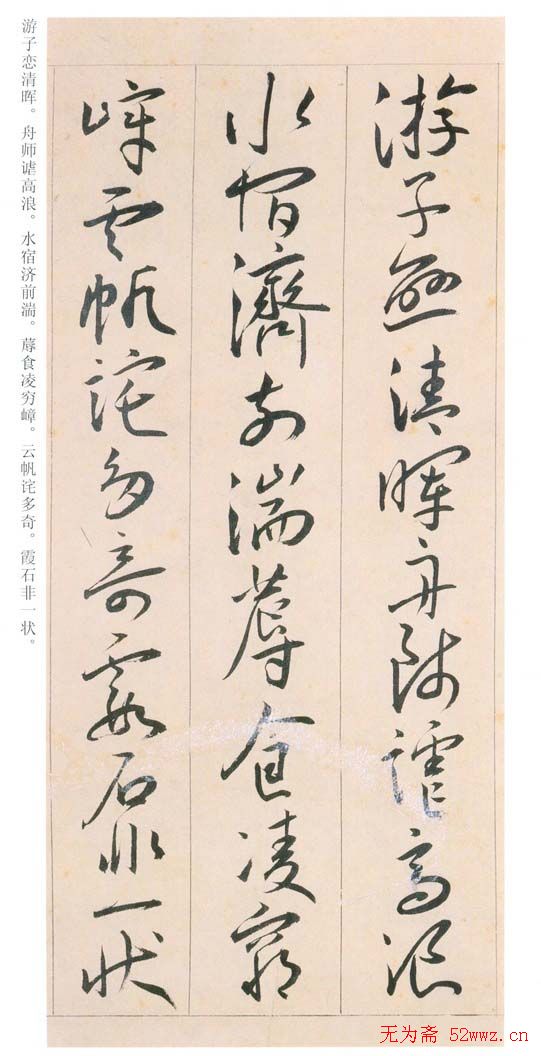 游子恋清晖。舟师谑高浪。水宿济前湍。蓐食凌穷嶂。云帆诧多奇。霞石非一状。
游子戀清暉舟師謔高浪
水宿濟前湍蓐食凌窮
嶂雲帆詫多奇霞石非一狀
无为斋 52wwz.cn